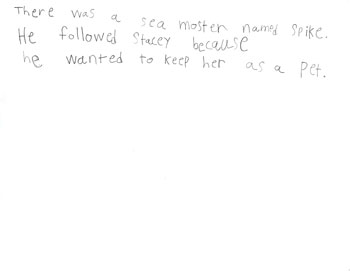 There was a sea moster named Spike.
He followed Stacey because
he wanted to keep her as a pet.